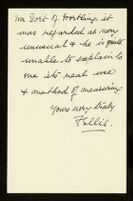 Mr Dort of Hostling, it
was regarded as very
unusual & he is quite
unable to explain to
me its real use
& method of measuring
Yours very truly
F Ellis.